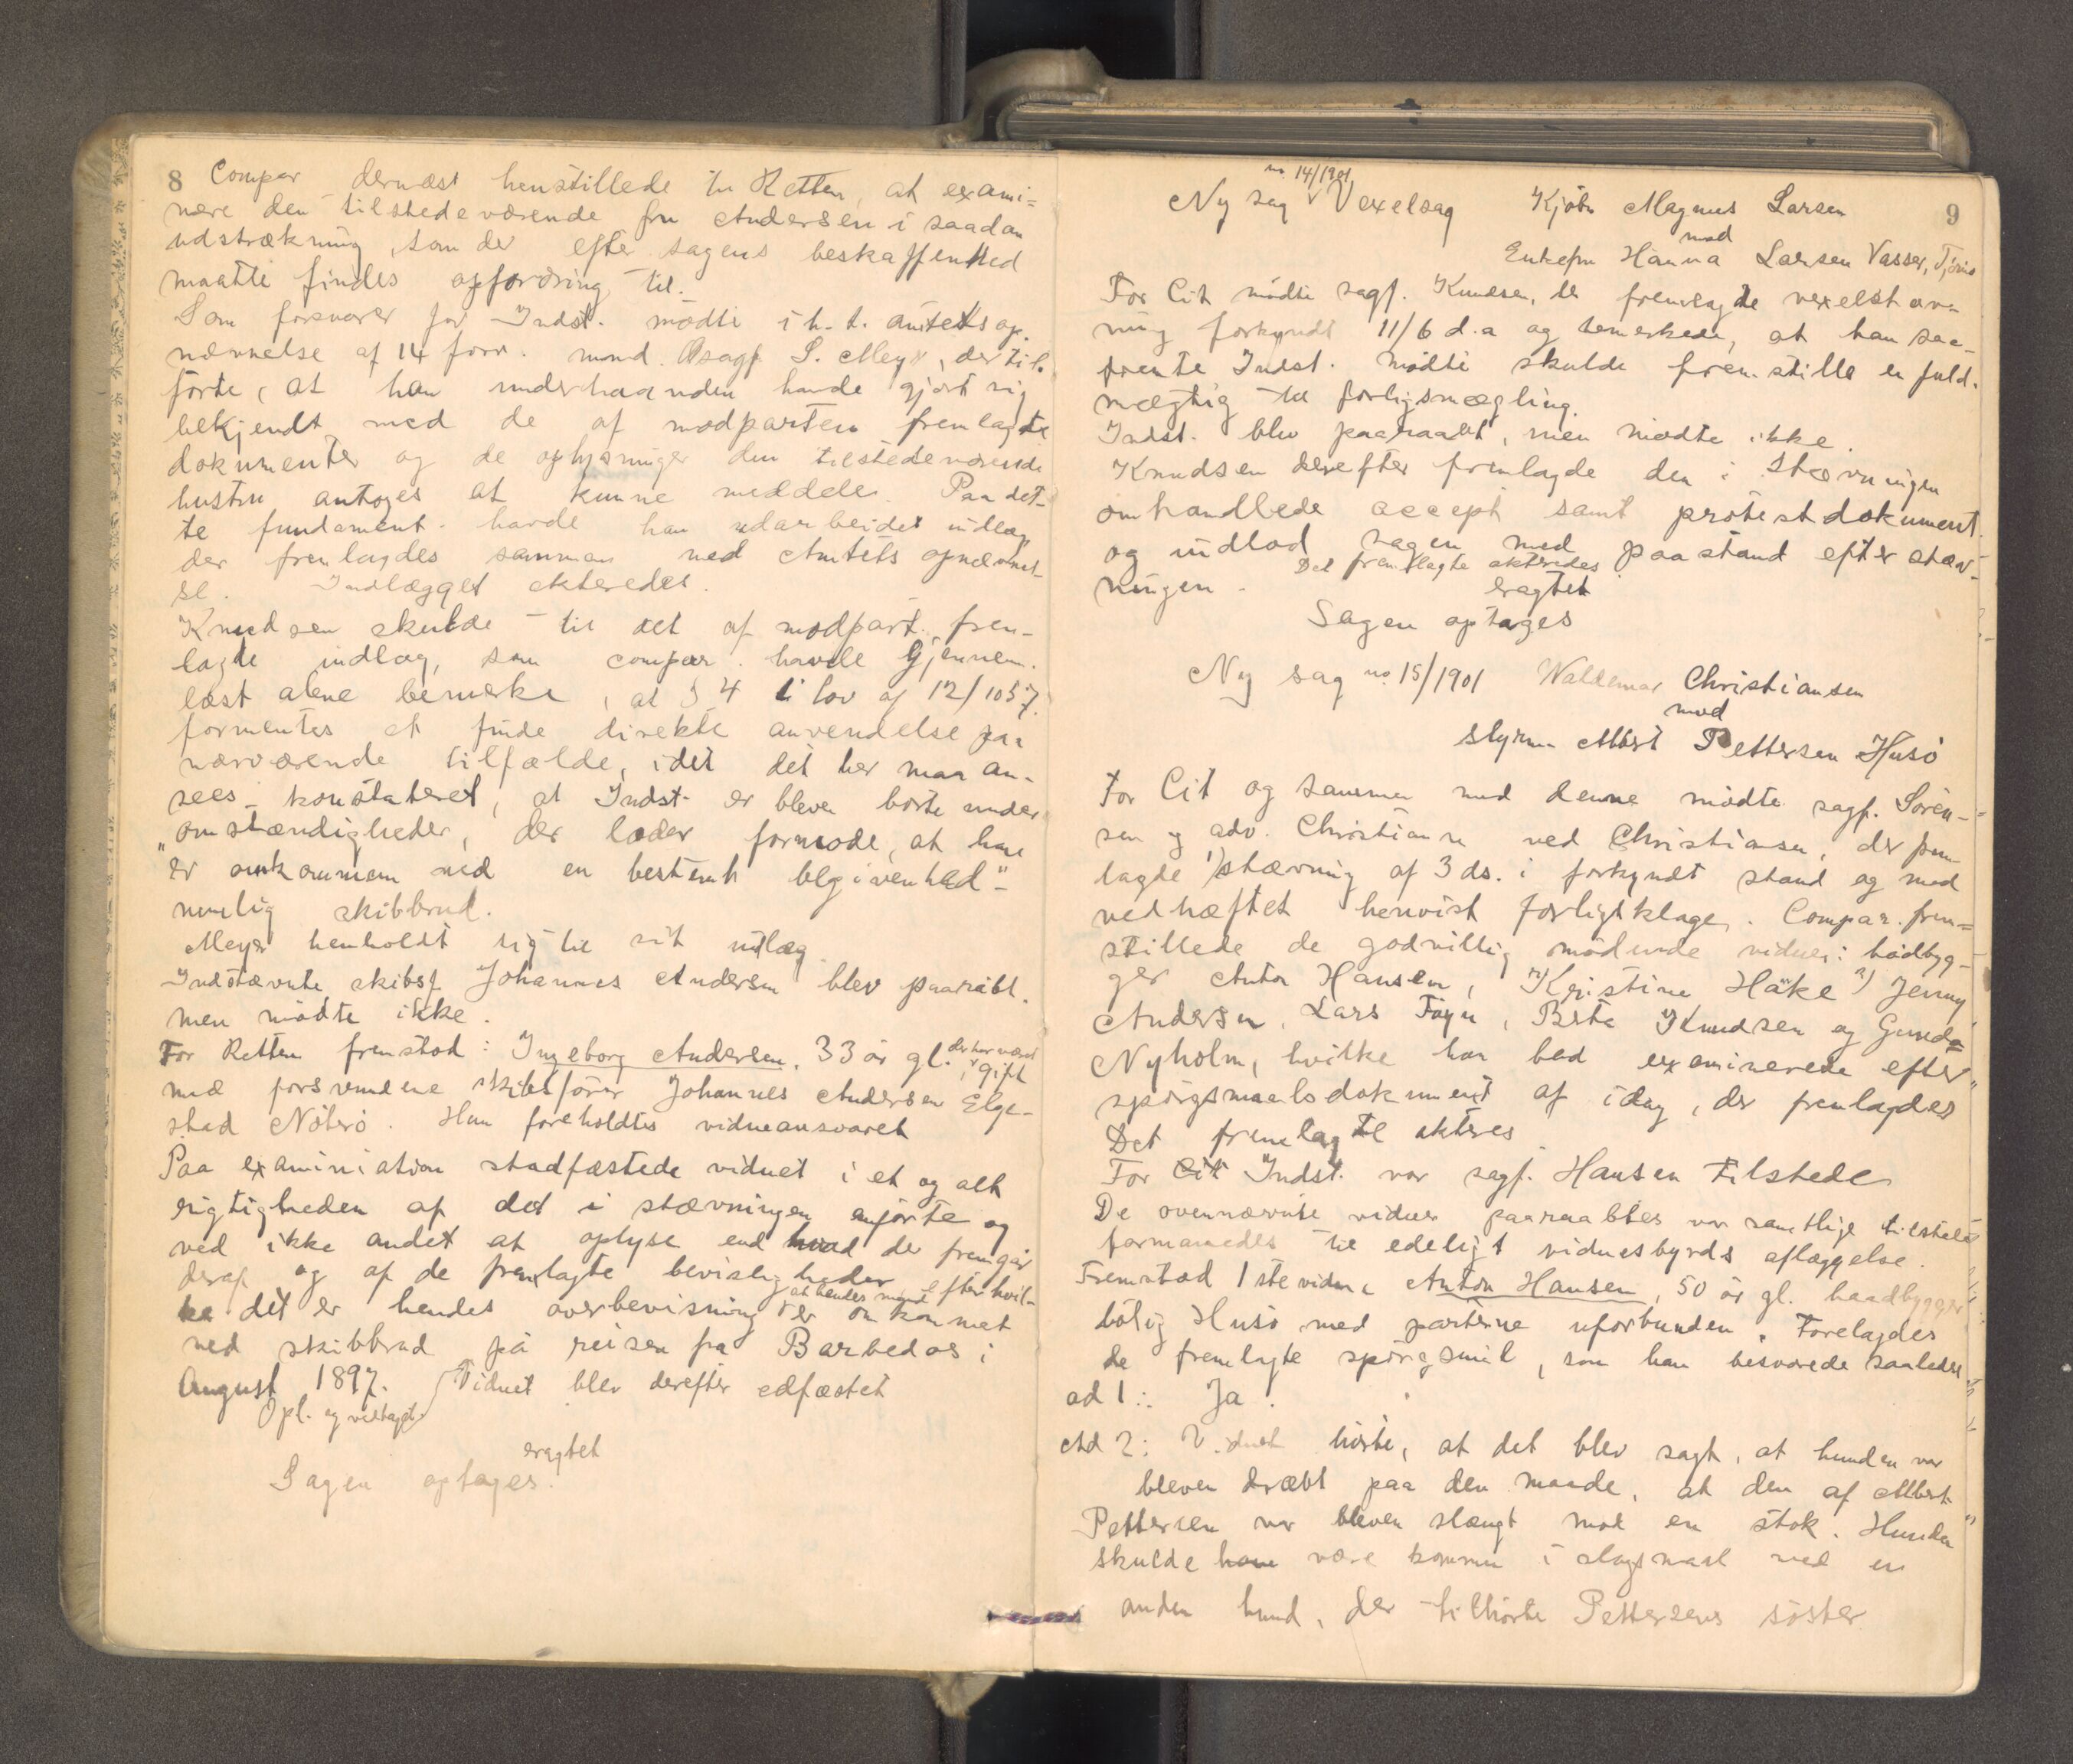 8 Compar dernæst henstillede til Retten, at exami=
nere den tilstedeværende fru Andersen i saadan
udstrækning, som der efter sagens beskaffenhed
maatte findes opfordring til.
Som forsvarer for Indst. mødte i h. t. amtets op.
nævnelse af 14 forr. mnd. Osagf S. Meyer, der til.
førte, at han underhaanden havde gjort sig
bekjendt med de af modparten fremlagte
dokumenter og de oplysninger den tilstedeværende
hustru antoges at kunne meddele. Paa det-
te fundament havde han udarbeidet indlæg
der fremlagdes sammen med Amtets opnævnel-
se. Indlægget akteredes.
Knudsen skulde til det af modpart. frem-
lagte indlæg, som compar. havde gjennem.
læst alene bemerke, at § 4 i lov af 12/10 57.
formentes at finde direkte anvendelse paa
nærværende tilfælde, idet det her maa an-
sees konstateret, at Indst. er bleven borte under
"omstændigheder, der lader formode, at han
er omkommen ved en bestemt begivenhed"-
nemlig skibbrud.
Meyer henholdt sig til sit indlæg
Indstævnte skibsf Johannes Andersen blev paaraabt.
men mødte ikke.
For Retten fremstod: Ingeborg Andersen, 33 år gl.,
der har været
gift
med forsvundene skibsfører Johannes Andersen Elge-
stad Nøterø. Hun foreholdtes vidneansvaret
Paa examination stadfæstede vidnet i et og alt
rigtigheden af det i stævningen anførte og
ved ikke andet at oplyse end hvad der fremgår
deraf og af de fremlagte bevisligheder efter hvil-
at hendes mand
ke det er hendes overbevisning er omkommet
ved skibbrud på reisen fra Barbedos i
August 1897. Vidnet blev derefter edfæstet
Opl. og vedtaget
eragtet
Sagen optages.
no. 14/1901
9
Ny sag Vexelsag Kjøbm Magnus Larsen
mod
Enkefru Hanna Larsen Vasser, Tjømø
For Cit mødte sagf. Knudsen, der fremlagde vexelstævn
ning forkyndt 11/6 d.a og bemerkede, at han saa-
fremte Indst. mødte skulde fremstille en fuld.
mægtig til forligsmægling.
Indst. blev paaraabt, men mødte ikke.
Knudsen derefter fremlagde den i Stævningen
omhandlede accept samt protestdokument.
og indlod sagen med paastand efter stæv-
Det fremlagte akteredes
ningen.
eragtet
Sagen optages
Ny sag no 15/1901 Waldemar Christiansen
mod
styrm. Albert Pettersen Husø
For Cit og sammen med denne mødte sagf. Søren-
sen og adv. Christiansen ved Christiansen, der frem
lagde 1) stævning af 3 ds. i forkyndt stand og med
vedhæftet henvist forligsklage. Compar. frem=
stillede de godvillig mødende vidner: bådbyg-
ger Anton Hansen, 2) Kristine Håke 3) Jenny
Andersen, Lars Føyn, Berte Knudsen og Gunda
Nyholm, hvilke han bad examinerede efter
spørgsmaalsdokument af idag, der fremlagdes
Det fremlagte akteres
For Cit Indst. var sagf. Hansen tilstede
De ovennævnte vidner paaraabtes var samtlige tilstede
formanedes til edeligt vidnesbyrds aflæggelse.
Fremstod 1ste vidne Anton Hansen, 50 år gl. baadbygger
bolig Husø med parterne uforbunden. Forelagdes
de fremlagte spørgsmål, som han besvarede saaledes
ad 1: Ja.
Ad 2: Vidnet hørte, at det blev sagt, at hunden var
bleven dræbt paa den maade, at den af Albert
Pettersen var bleven slængt mod en stok. Hunden
skulde have være kommen i slagsmaal med en
anden hund, der tilhørte Pettersens søster